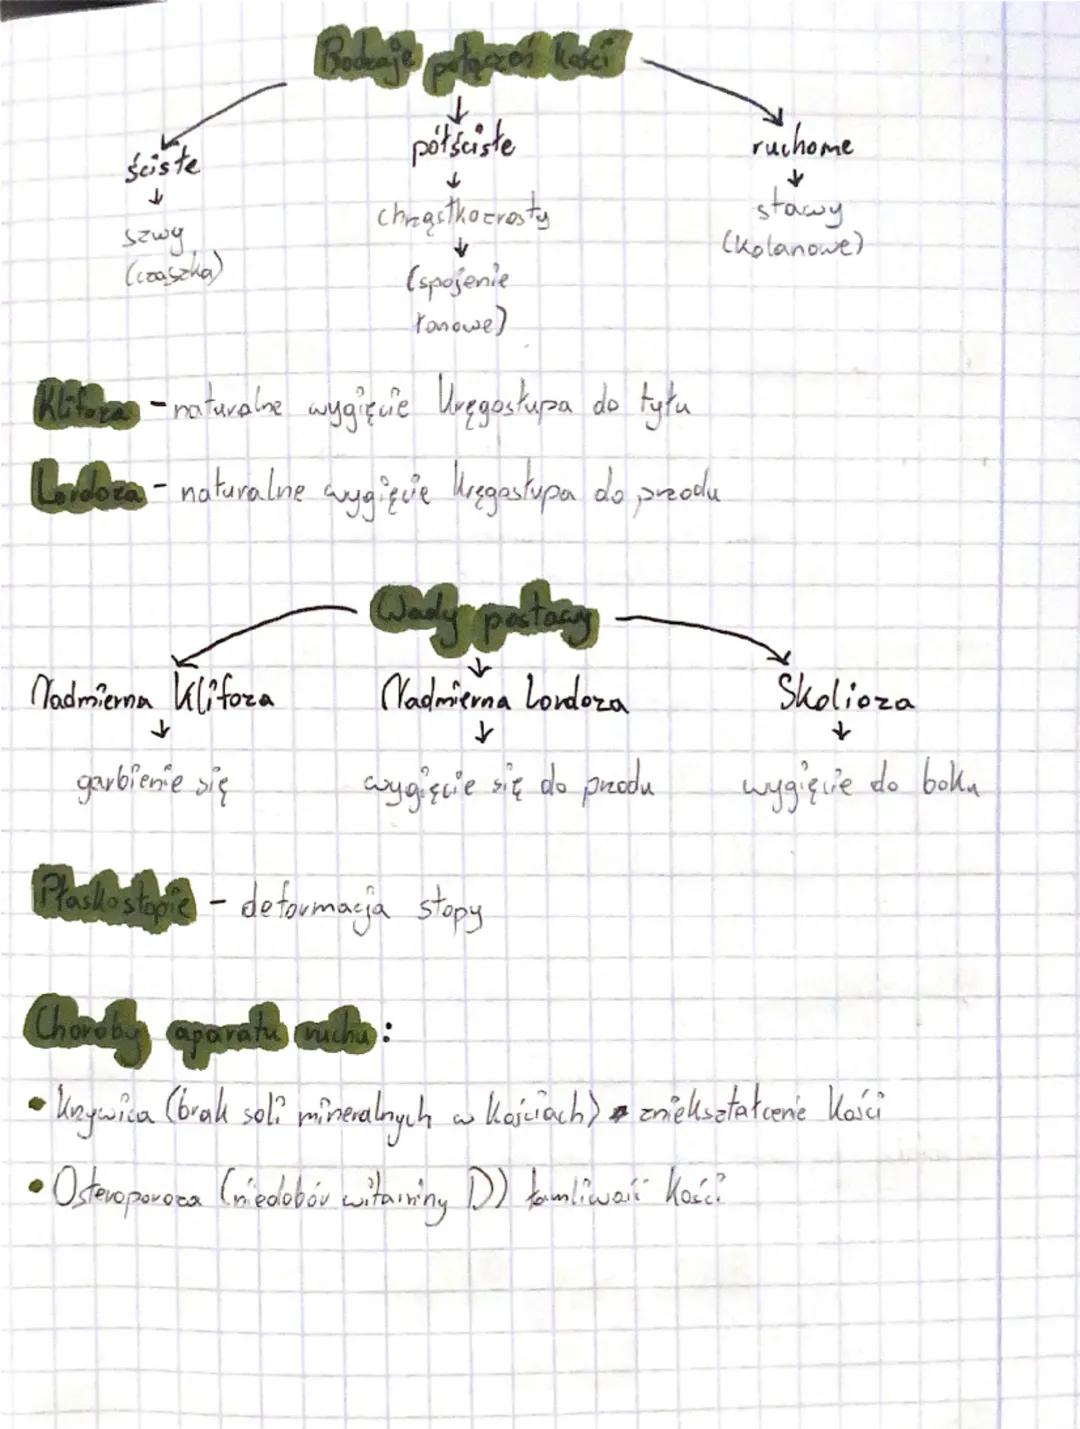 Rodzaje połączeń kości
ściste
półściste
ruchome
szwy
(czaszka)
chrząstkozrosty
(spojenie
łonowe)
stawy
(kolanowe)
Klifoza - naturalne wygięcie kręgosłupa do tyłu
Lordoza - naturalne wygięcie kręgosłupa do przodu
Wady postawy
Nadmierna klifoza
Nadmierna lordoza
Skolioza
garbienie się
wygięcie się do przodu
wygięcie do boku
Płaskostopie - deformacja stopy
Choroby aparatu ruchu:
• Krzywica (brak soli mineralnych w kościach) zniekształcenie kości
• Osteroporoza (niedobór witaminy D) łamliwość kości